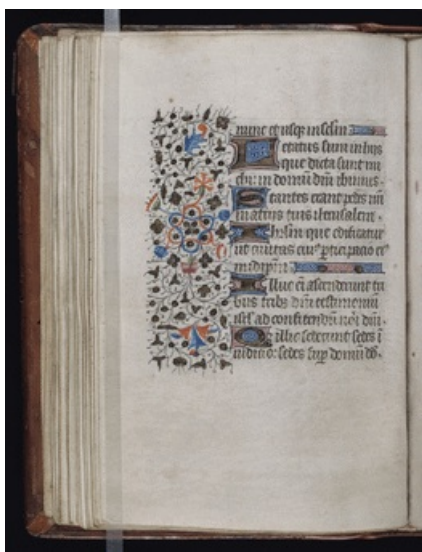 nunc et usq; in sclm
Letatus sum in hiis
que dicta sunt mi
chi: in domu dni ibimus.
Stantes erant pedes nri
in atriis tuis iherusalem.
Ihrlm que edificatur
ut civitas cui9 pticipacio ei9
in idipm
Illuc ei ascenderunt tri
bus trib9 dni testimoniu
isrl ad confitendu noi dni.
Quia illic sederunt sedes i
iudicio: sedes sup domu dd.